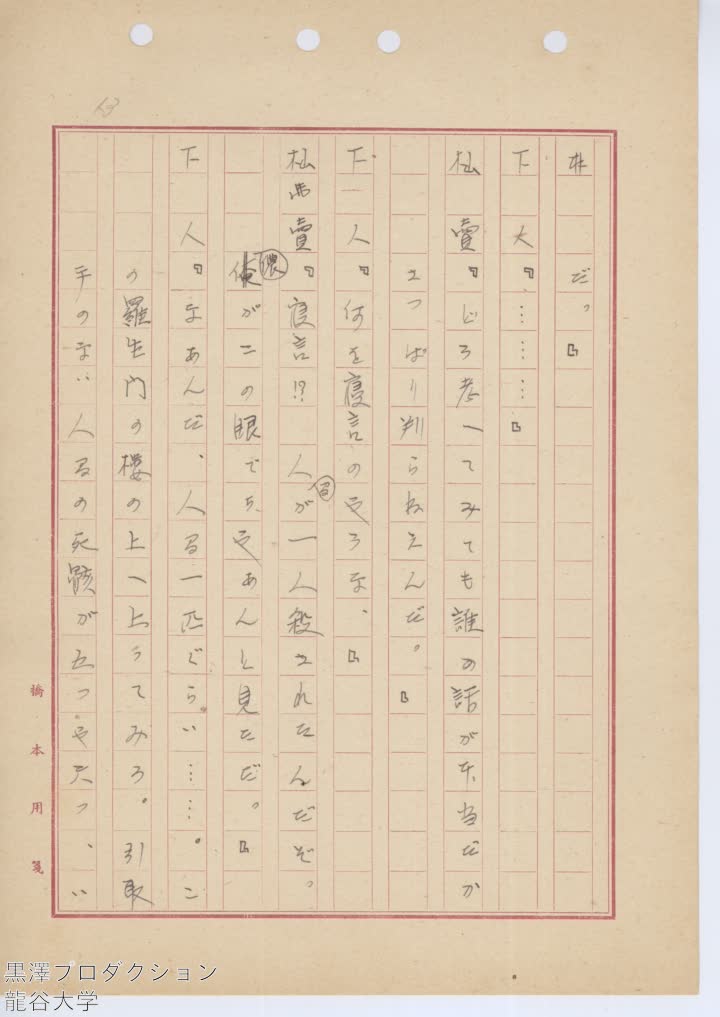 だ。』
下人『………』
杣賣『じろ考へてみても誰の話が本当だか
さっぱり判らねえんだ。』
下人『何を寝言のやうな、』
杣賣『寝言!? 人が一人殺されたんだぞ。
儂がこの眼でちやあんと見ただ。』
下人『なあんだ、人間一匹ぐらい……。こ
の羅生門の楼の上へ上つてみろ。引取
手のない人間の死骸が五つや六つ、い
橋本用箋
黒澤プロダクション
龍谷大学